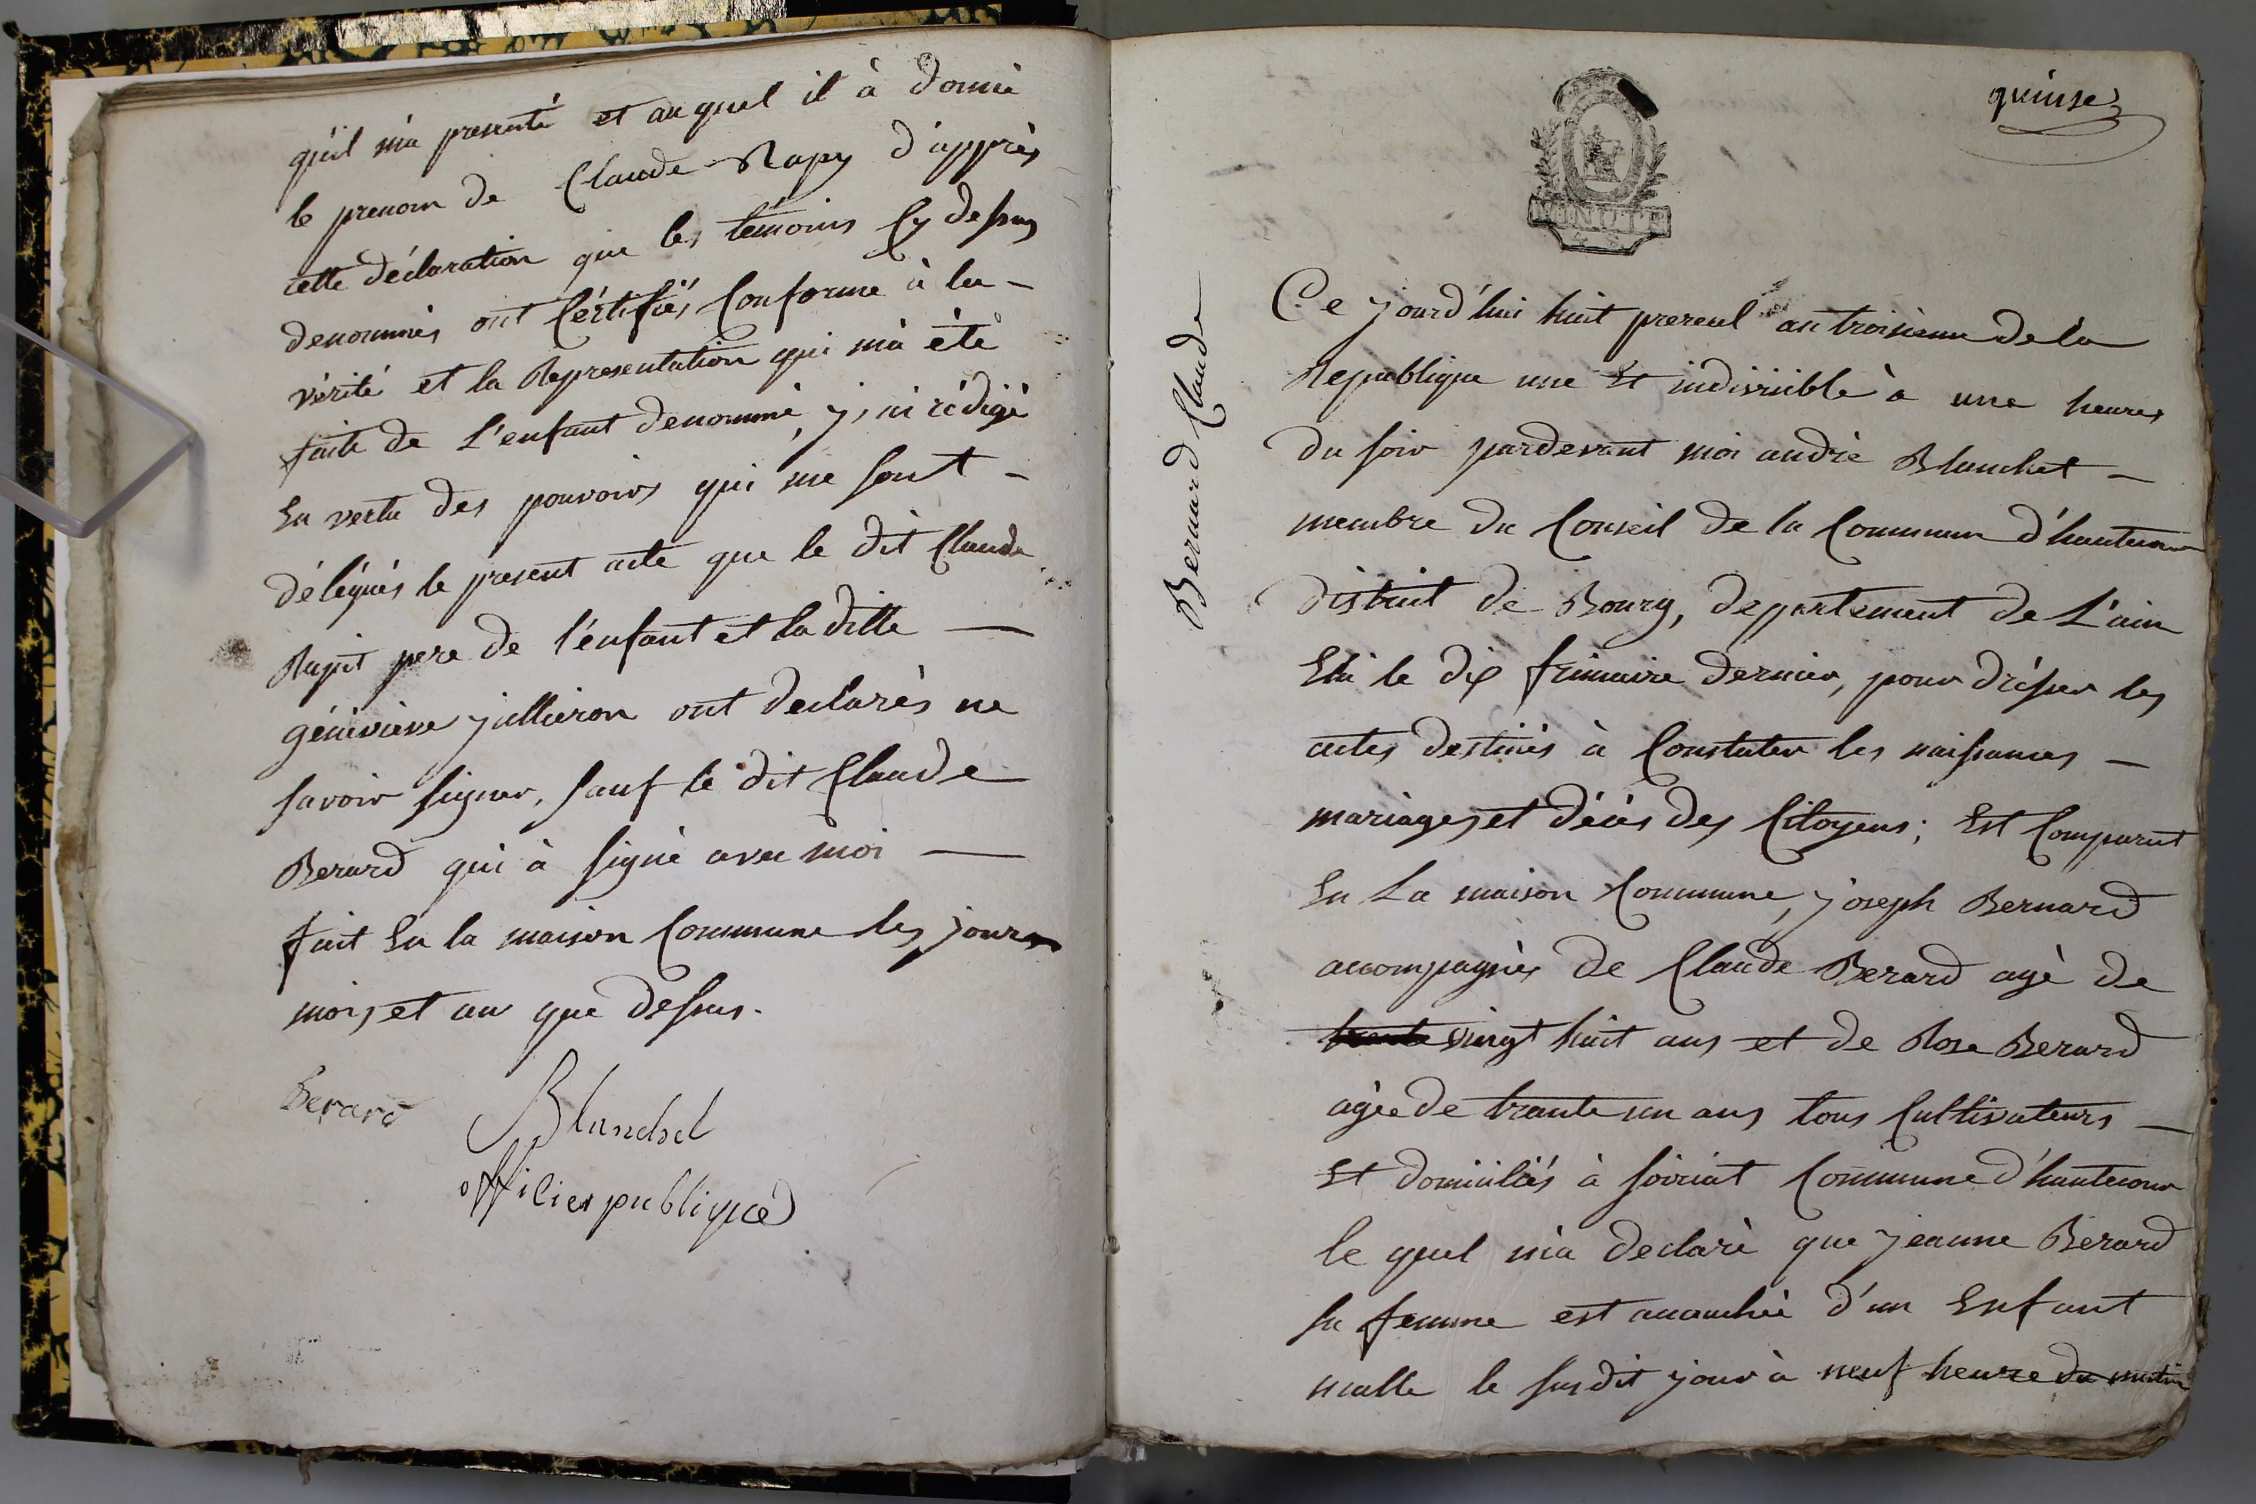 qu'il m'a presenté et au quel il à donné
le prenom de Claude Rapy d'apprès
cette déclaration que les témoins Cy dessus
denommés ont Cértifiés Conforme à la -
vérité et la Representation qui m'a été
faite de L'enfant denommé, j'ai rédigé
En vertu des pouvoirs qui me sont -
délégués le present acte que le dit Claude
Rapit pere de l'enfant et la ditte —
généviéve jullieron ont declarés ne
savoir signer, sauf le dit Claude
Berard qui à signé avec moi —
fait En la maison Commune les jours
mois et an que dessus.
Berard
Blanchet
officier publique
quinse
Bernard Claude
Ce jourd'hui huit prereul an troisieme de la
Republique une Et indivisible à une heures
du soir pardevant moi andré Blanchet -
membre du Conseil de la Commune d'hautecour
district de Bourg, departement de L'ain
Elu le dix frimaire dernier, pour drésser les
actes destinés à Constater les naissances -
mariages et décés des Citoyens; Est Comparut
En La maison Commune, joseph Bernard
accompagnés de Claude Berard agé de
vingt huit ans et de Rose Berard
agée de trante un ans tous Cultivateurs -
Et domiciliés à soiriat Commune d'hautecour
le quel m'a declaré que jeanne Berard
sa femme est accouchée d'un Enfant
malle le susdit jour à neuf heure du matin